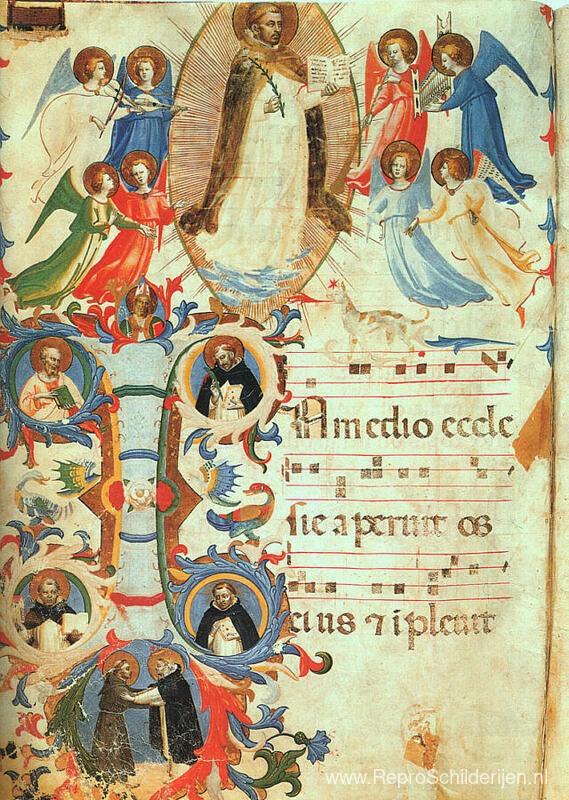 IN medio eccle
sie aperuit os
eius ⁊ ipleuit
www.ReproSchilderijen.nl